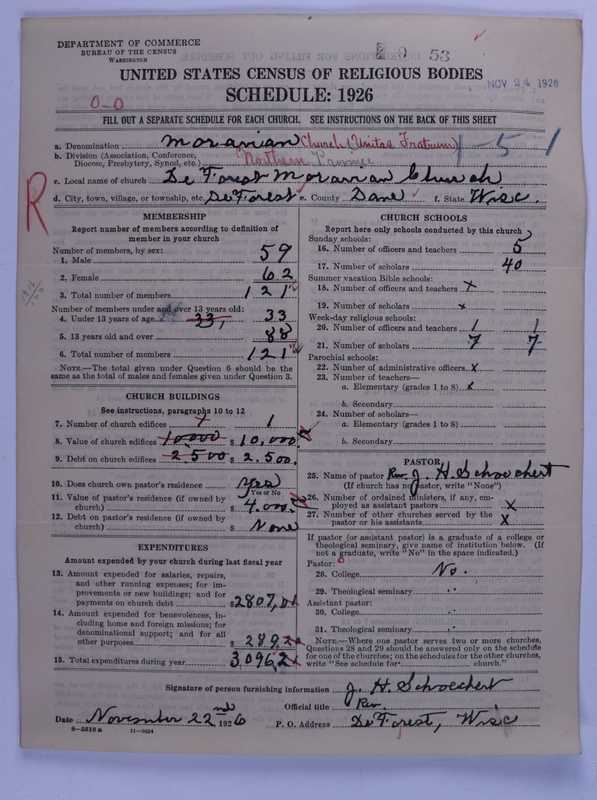 DEPARTMENT OF COMMERCE
BUREAU OF THE CENSUS
WASHINGTON
53
NOV 24 1926
UNITED STATES CENSUS OF RELIGIOUS BODIES
SCHEDULE: 1926
0-0
FILL OUT A SEPARATE SCHEDULE FOR EACH CHURCH. SEE INSTRUCTIONS ON THE BACK OF THIS SHEET
a. Denomination Moravian Church (Unitas Fratrum) 1-51
b. Division (Association, Conference, Diocese, Presbytery, Synod, etc.) Northern Province
c. Local name of church De Forest Moravian Church
d. City, town, village, or township, etc. DeForest e. County Dane f. State Wisc.
R
MEMBERSHIP
Report number of members according to definition of member in your church
Number of members, by sex:
1. Male 59
2. Female 62
3. Total number of members 121
Number of members under and over 13 years old:
4. Under 13 years of age 33, 33
5. 13 years old and over 88
6. Total number of members 121
NOTE.—The total given under Question 6 should be the same as the total of males and females given under Question 3.
CHURCH BUILDINGS
See instructions, paragraphs 10 to 12
7. Number of church edifices 1 1
8. Value of church edifices 10000 $ 10,000.
9. Debt on church edifices 2500 $ 2.500.
10. Does church own pastor's residence Yes
Yes or No
11. Value of pastor's residence (if owned by church) $ 4.000.
12. Debt on pastor's residence (if owned by church) $ None
EXPENDITURES
Amount expended by your church during last fiscal year
13. Amount expended for salaries, repairs, and other running expenses; for improvements or new buildings; and for payments on church debt $ 2807,01
14. Amount expended for benevolences, including home and foreign missions; for denominational support; and for all other purposes $ 289,20
15. Total expenditures during year $ 3096,21
CHURCH SCHOOLS
Report here only schools conducted by this church
Sunday schools:
16. Number of officers and teachers 5
17. Number of scholars 40
Summer vacation Bible schools:
18. Number of officers and teachers x
19. Number of scholars x
Week-day religious schools:
20. Number of officers and teachers 1 1
21. Number of scholars 7 7
Parochial schools:
22. Number of administrative officers x
23. Number of teachers—
a. Elementary (grades 1 to 8) x
b. Secondary
24. Number of scholars—
a. Elementary (grades 1 to 8)
b. Secondary
PASTOR
25. Name of pastor Rev. J. H. Schoechert
(If church has no pastor, write "None")
26. Number of ordained ministers, if any, employed as assistant pastors x
27. Number of other churches served by the pastor or his assistants x
If pastor (or assistant pastor) is a graduate of a college or theological seminary, give name of institution below. (If not a graduate, write "No" in the space indicated.)
Pastor:
28. College No.
29. Theological seminary "
Assistant pastor:
30. College "
31. Theological seminary "
NOTE.—Where one pastor serves two or more churches, Questions 28 and 29 should be answered only on the schedule for one of the churches; on the schedules for the other churches, write "See schedule for church."
Signature of person furnishing information J. H. Schoechert
Official title Rev.
Date November 22nd 1926 P. O. Address De Forest, Wisc
8-5518 a 11-9034